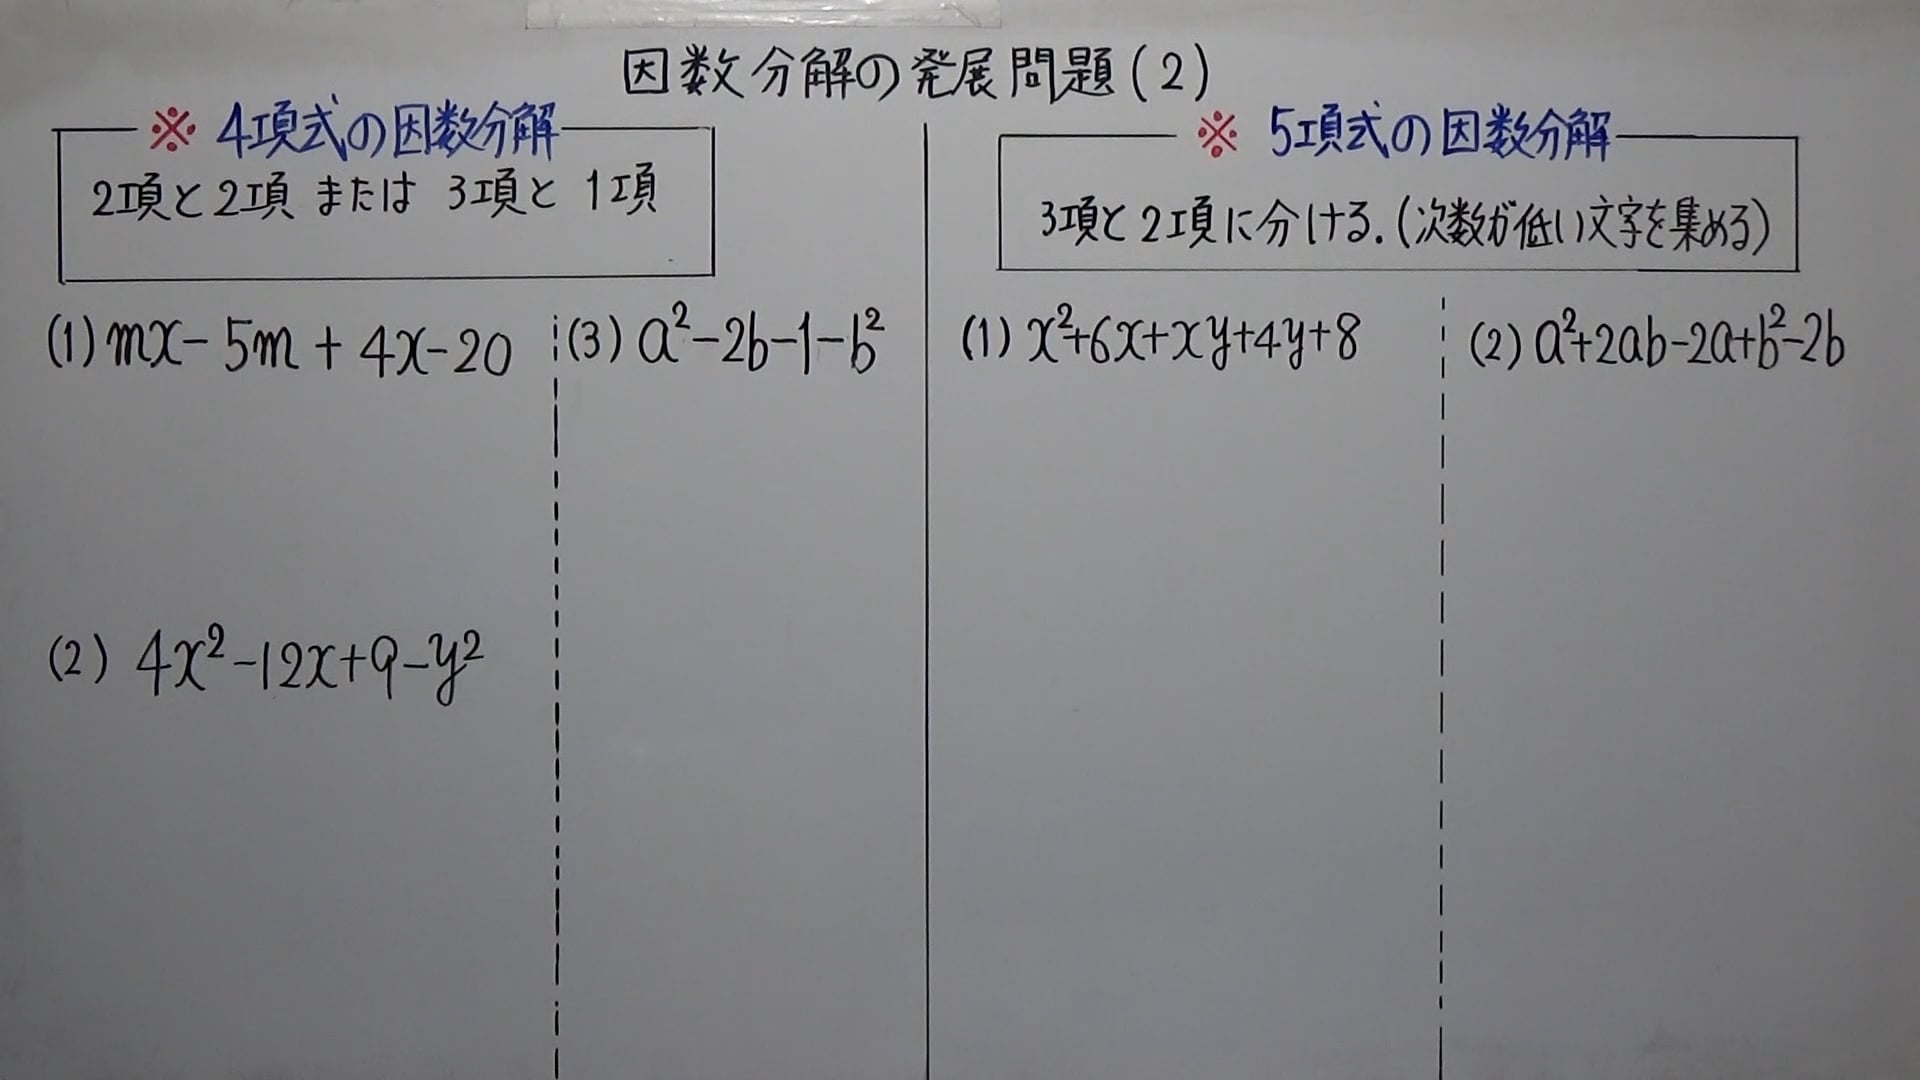 因数分解の発展問題(2)
※ 4項式の因数分解
2項と2項 または 3項と 1項
(1) mx-5m+4x-20
(2) 4x²-12x+9-y²
(3) a²-2b-1-b²
※ 5項式の因数分解
3項と2項に分ける.(次数が低い文字を集める)
(1) x²+6x+xy+4y+8
(2) a²+2ab-2a+b²-2b